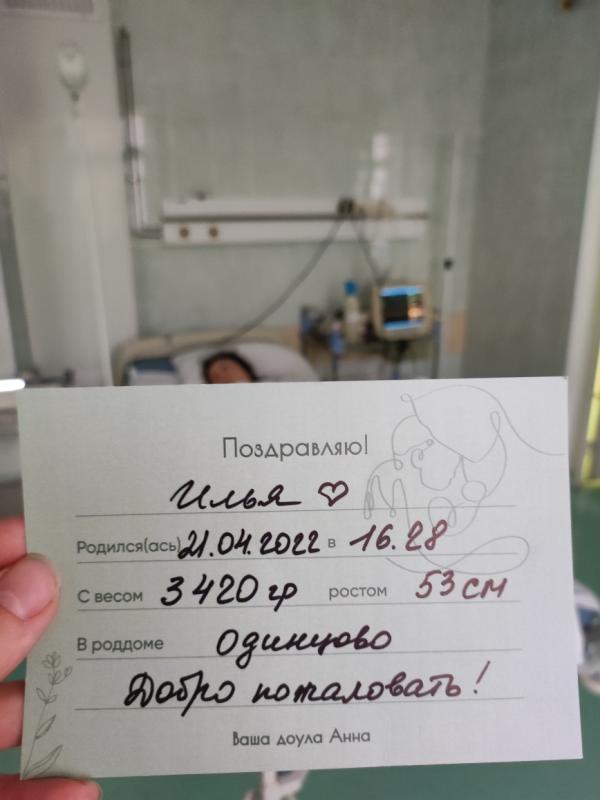 Поздравляю!
Илья ♡
Родился(ась) 21.04.2022 в 16.28
С весом 3420 гр ростом 53 см
В роддоме Одинцово
Добро пожаловать!
Ваша доула Анна